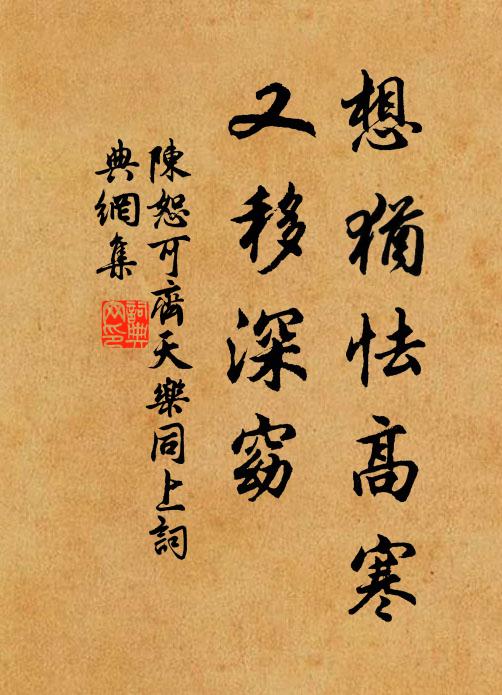 想猶怯高寒
又移深窈
陳恕可齊天樂同上詞
典網集
詞典
网印